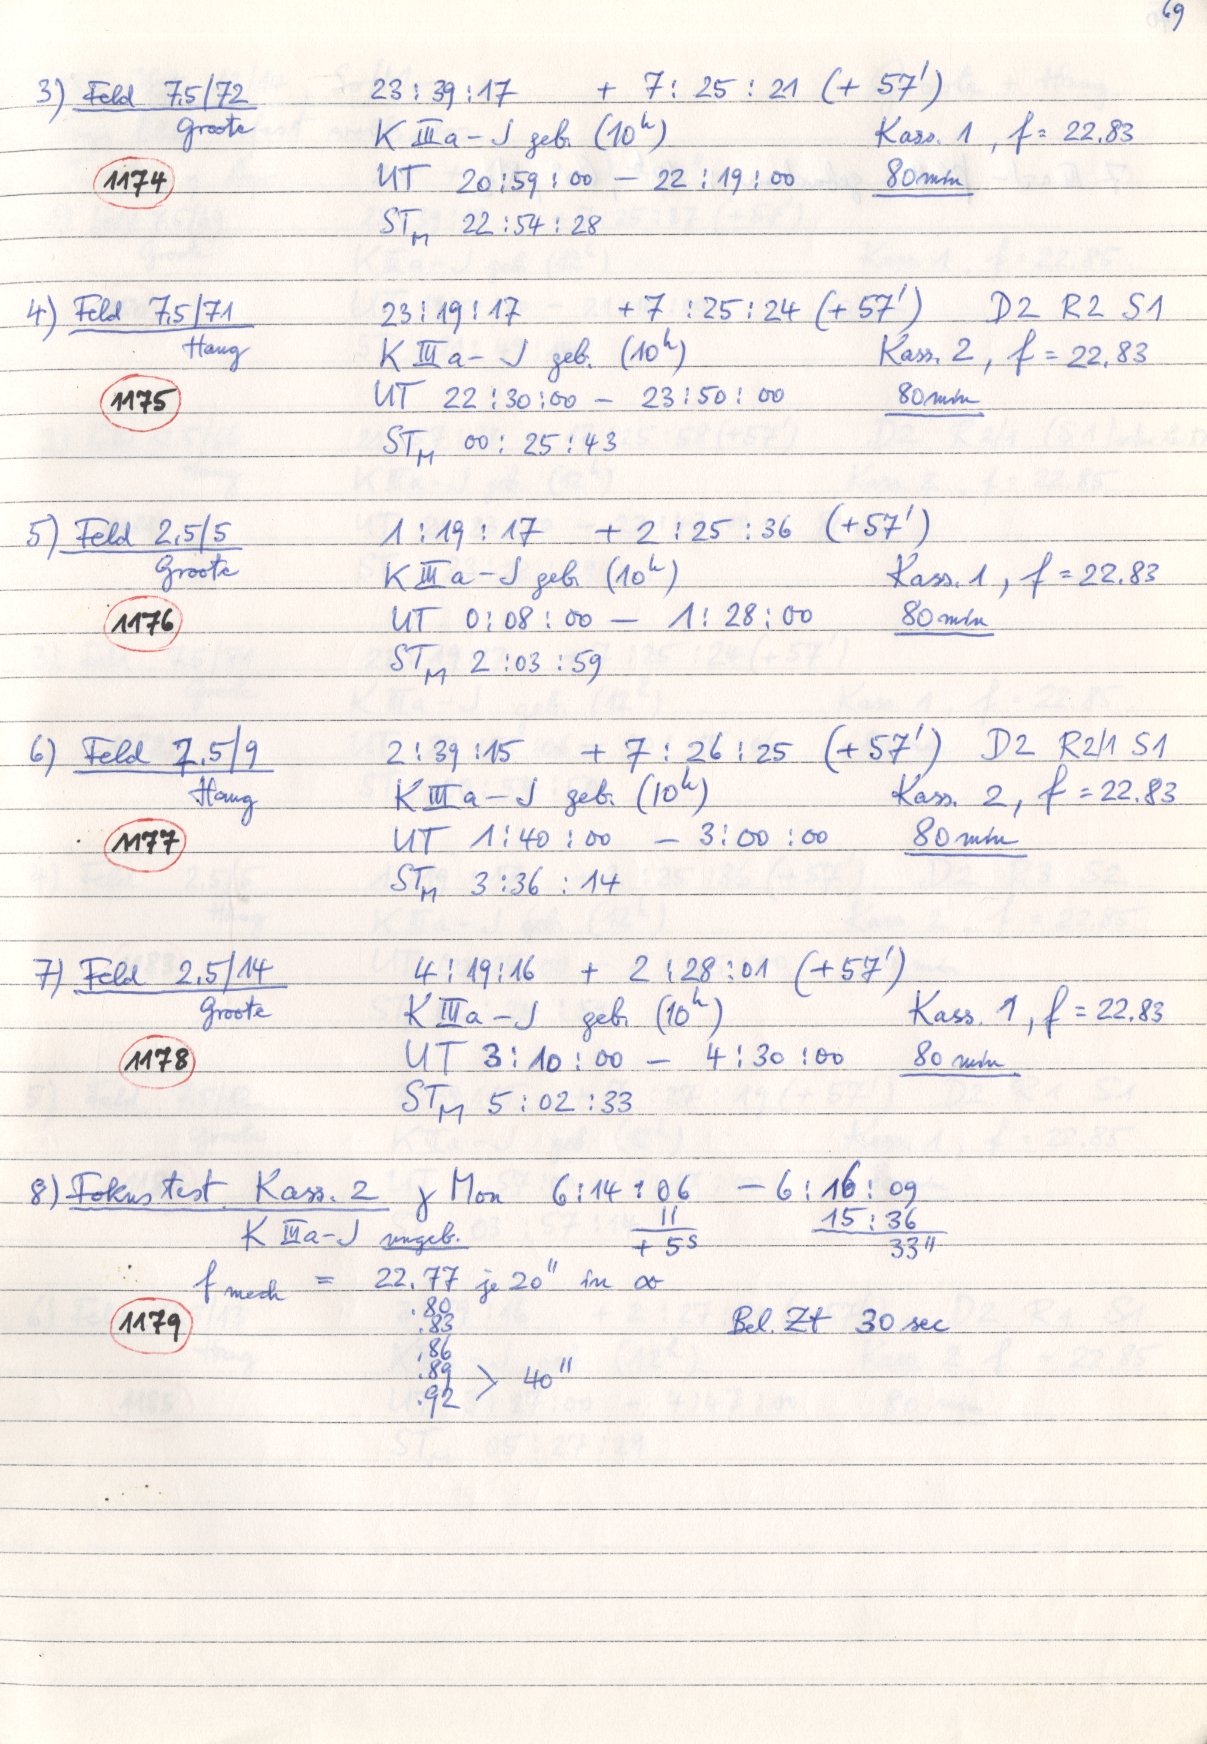 69
3) Feld 7,5/72 23:39:17 + 7:25:21 (+57')
Groote K IIIa-J geb. (10h) Kass. 1, f = 22.83
1174 UT 20:59:00 – 22:19:00 80min
STM 22:54:28
4) Feld 7,5/71 23:19:17 +7:25:24 (+57') D2 R2 S1
Haug K IIIa-J geb. (10h) Kass. 2, f = 22.83
1175 UT 22:30:00 – 23:50:00 80min
STM 00:25:43
5) Feld 2,5/5 1:19:17 +2:25:36 (+57')
Groote K IIIa-J geb. (10h) Kass. 1, f = 22.83
1176 UT 0:08:00 – 1:28:00 80min
STM 2:03:59
6) Feld 7,5/9 2:39:15 + 7:26:25 (+57') D2 R2/1 S1
Haug K IIIa-J geb. (10h) Kass. 2, f = 22.83
1177 UT 1:40:00 – 3:00:00 80min
STM 3:36:14
7) Feld 2,5/14 4:19:16 + 2:28:01 (+57')
Groote K IIIa-J geb. (10h) Kass. 1, f = 22.83
1178 UT 3:10:00 – 4:30:00 80min
STM 5:02:33
8) Fokustest Kass. 2 γ Mon 6:14:06 – 6:16:09
11 15:36
K IIIa-J ungeb. + 5s 33"
f mech = 22.77 je 20" in α
.80
1179 .83 Bel. Zt 30 sec
.86
.89 > 40"
.92